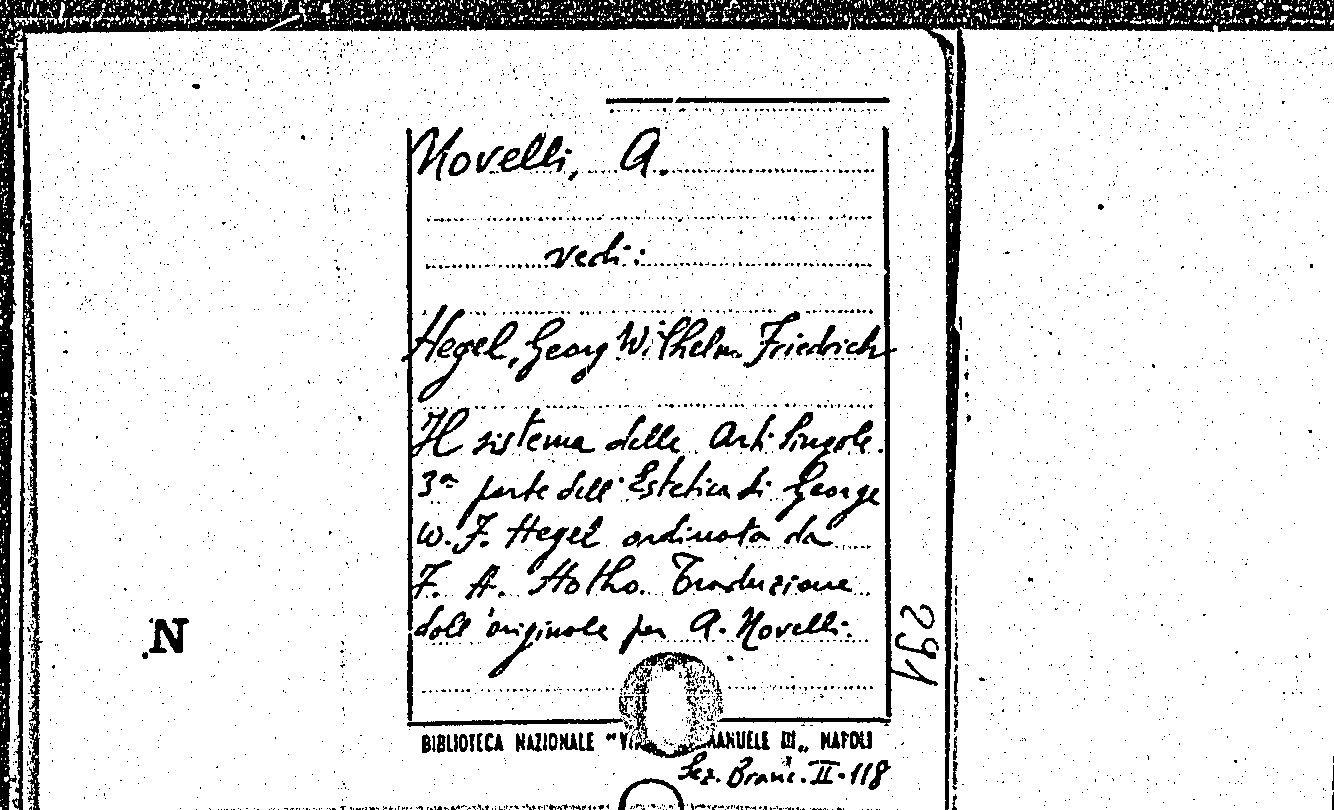 Novelli, A.
vedi:
Hegel, Georg Wilhelm Friedrich
Il sistema delle Arti Singole.
3ª parte dell'Estetica di George
W. F. Hegel ordinata da
F. A. Hotho. Traduzione
dall'originale per A. Novelli.
N
291
BIBLIOTECA NAZIONALE "VI MANUELE III„ NAPOLI
Sez. Branc. II-118